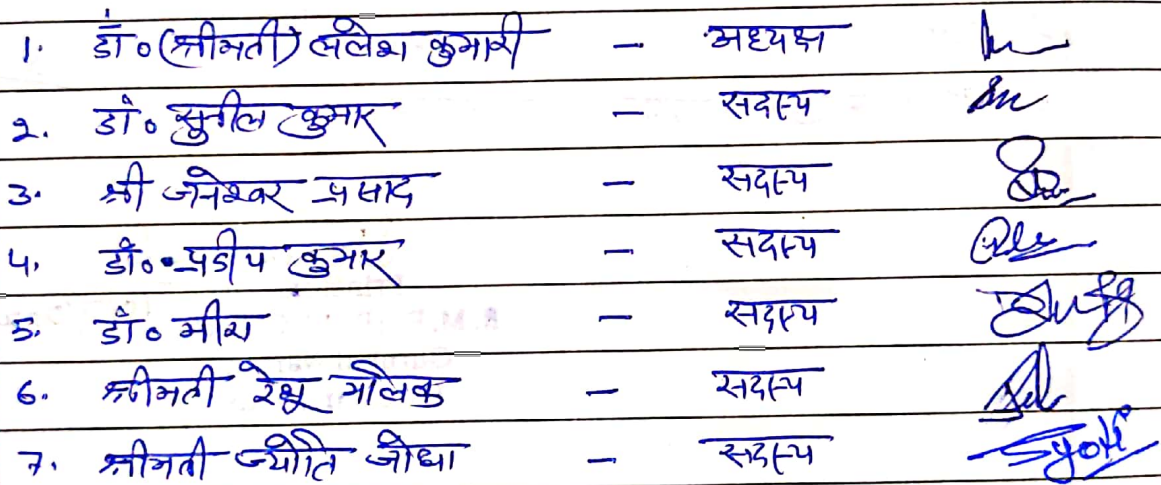 1. डॉ० (श्रीमती) लैलेश कुमारी - अध्यक्ष
2. डॉ० सुनील कुमार - सदस्य
3. श्री जनेश्वर प्रसाद - सदस्य
4. डॉ० प्रदीप कुमार - सदस्य
5. डॉ० मीरा - सदस्य
6. श्रीमती रेखू मलिक - सदस्य
7. श्रीमती ज्योति जोधा - सदस्य Jyoti